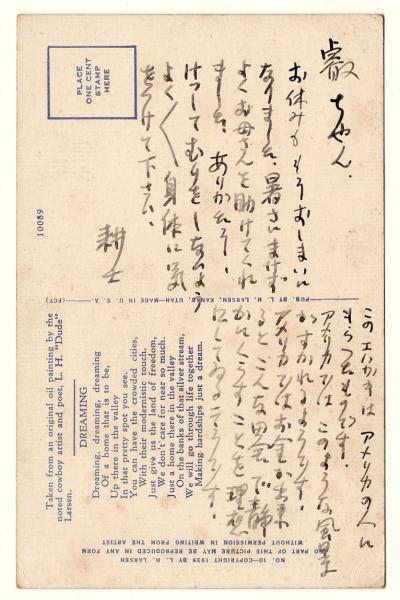 叡ちやん.
お休みももうおしまいに
なりました。暑さにまけず
よくお母さんを助けてくれ
ました。ありがたう。
けつしてむりをしないよう
よく〱身体に気
をつけて下さい。
耕士
このエハガキは アメリカの人に
もらつたものです
アメリカには このような風景
アメリカ人はお金が出来
るとこんな田舎で静
かにくらすことを理想
にして
PLACE
ONE CENT
STAMP
HERE
10089
PUB. BY L. H. LARSEN, KANAB, UTAH—MADE IN U. S. A. (PCY)
Taken from an original oil painting by the
noted cowboy artist and poet, L. H. "Dude"
Larsen.
DREAMING
Dreaming, dreaming, dreaming
Of a home that is to be,
Up there in the valley
In that pretty spot you see.
You can have the crowded cities,
With their modernistic touch,
Just give us the land of freedom,
We don't care for near so much.
Just a home there in the valley
On the banks of the silver stream,
We will go through life together
Making hardships just a dream.
NO. 10—COPYRIGHT 1939 BY L. H. LARSEN
NO PART OF THIS PICTURE MAY BE REPRODUCED IN ANY FORM
WITHOUT PERMISSION IN WRITING FROM THE ARTIST